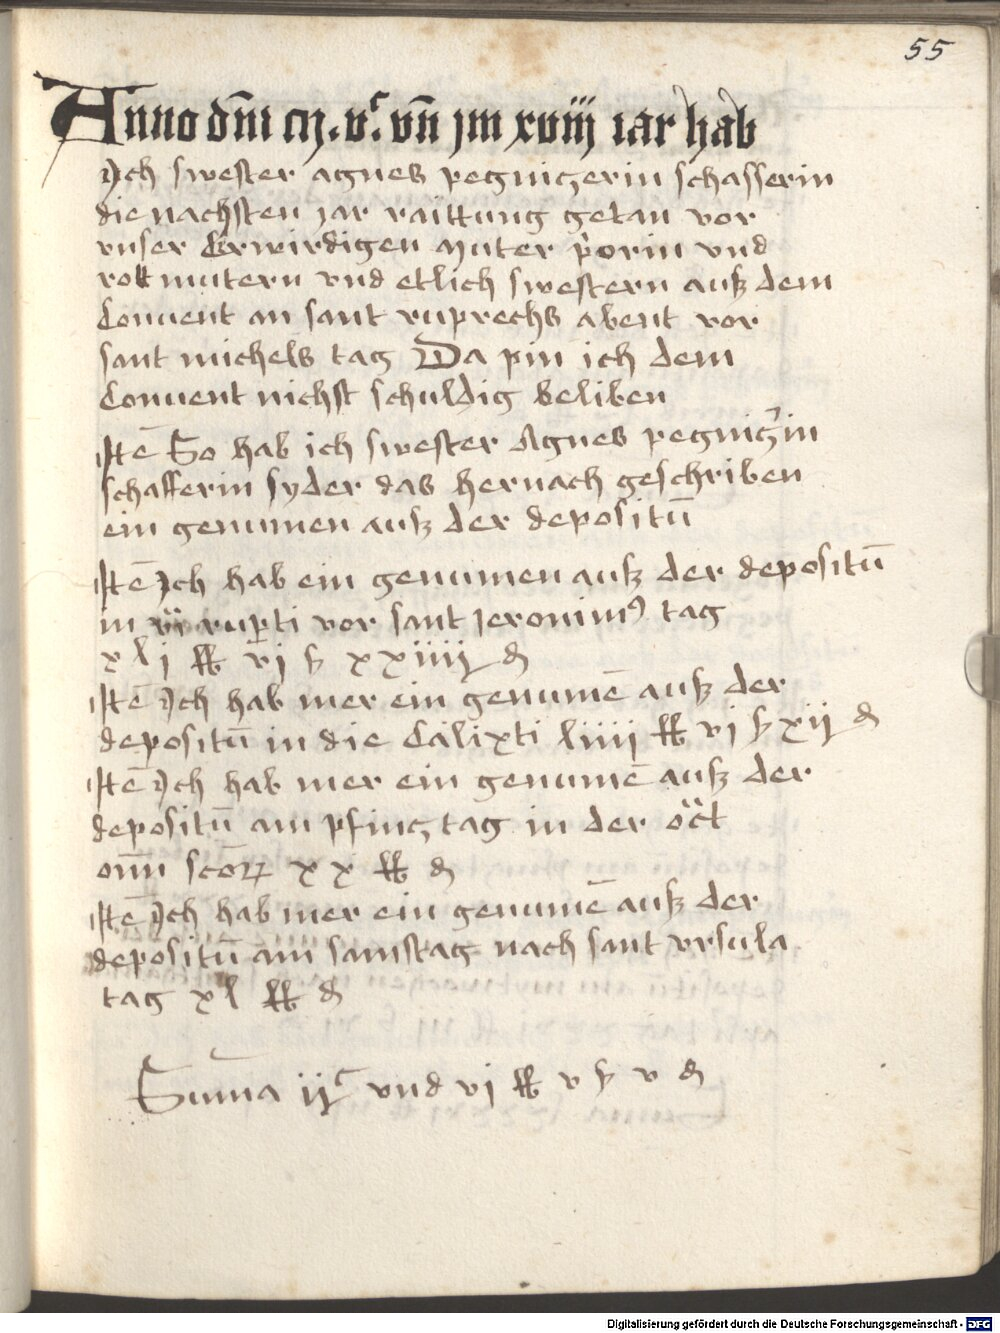 55
Anno dñi cıɔ. vᶜ. vñ jm xviij iar hab
Jch swester agnes pegniczerin schafferin
die nachsten jar raittung getan vor
vnser Erwirdigen muter p̃orin vnd
rott mutern vnd etlich swestern auß dem
Conuent an sant ruprechs abent vor
sant michels tag Da pin ich dem
Conuent nichst schuldig beliben
Jtē So hab ich swester Agnes pegnicz̃in
schafferin syder das hernach geschriben
ein genumen auß der depositū
Jtē Jch hab ein genumen auß der depositū
in rup̱ti vor sant Jeronimꝰ tag
xlj ℔ vj ß xxiiij ₰
Jtē Jch hab mer ein genumē auß der
depositū in die Calixti liiij ℔ vj ß xij ₰
Jtē Jch hab mer ein genumē auß der
depositū am pfincztag in der oct̃
om̄i scōꝝ xx ℔ ₰
Jtē Jch hab mer ein genumē auß der
depositū am samstag nach sant vrsula
tag xl ℔ ₰
Sum̄a ijᶜ vnd vj ℔ v ß v ₰
Digitalisierung gefördert durch die Deutsche Forschungsgemeinschaft - DFG